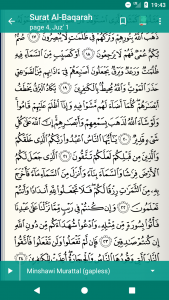 19:43
Surat Al-Baqarah
page 4, Juz' 1
ذَهَبَ ٱللَّهُ بِنُورِهِمْ وَتَرَكَهُمْ فِى ظُلُمَٰتٍ لَّا يُبْصِرُونَ ١٧ صُمٌّۢ
بُكْمٌ عُمْىٌ فَهُمْ لَا يَرْجِعُونَ ١٨ أَوْ كَصَيِّبٍ مِّنَ ٱلسَّمَآءِ فِيهِ
ظُلُمَٰتٌ وَرَعْدٌ وَبَرْقٌ يَجْعَلُونَ أَصَٰبِعَهُمْ فِىٓ ءَاذَانِهِم مِّنَ ٱلصَّوَٰعِقِ
حَذَرَ ٱلْمَوْتِ وَٱللَّهُ مُحِيطٌۢ بِٱلْكَٰفِرِينَ ١٩ يَكَادُ ٱلْبَرْقُ يَخْطَفُ
أَبْصَٰرَهُمْ كُلَّمَآ أَضَآءَ لَهُم مَّشَوْا۟ فِيهِ وَإِذَآ أَظْلَمَ عَلَيْهِمْ قَامُوا۟
وَلَوْ شَآءَ ٱللَّهُ لَذَهَبَ بِسَمْعِهِمْ وَأَبْصَٰرِهِمْ إِنَّ ٱللَّهَ عَلَىٰ كُلِّ
شَىْءٍ قَدِيرٌ ٢٠ يَٰٓأَيُّهَا ٱلنَّاسُ ٱعْبُدُوا۟ رَبَّكُمُ ٱلَّذِى خَلَقَكُمْ
وَٱلَّذِينَ مِن قَبْلِكُمْ لَعَلَّكُمْ تَتَّقُونَ ٢١ ٱلَّذِى جَعَلَ لَكُمُ
ٱلْأَرْضَ فِرَٰشًا وَٱلسَّمَآءَ بِنَآءً وَأَنزَلَ مِنَ ٱلسَّمَآءِ مَآءً فَأَخْرَجَ
بِهِۦ مِنَ ٱلثَّمَرَٰتِ رِزْقًا لَّكُمْ فَلَا تَجْعَلُوا۟ لِلَّهِ أَندَادًا وَأَنتُمْ
تَعْلَمُونَ ٢٢ وَإِن كُنتُمْ فِى رَيْبٍ مِّمَّا نَزَّلْنَا عَلَىٰ عَبْدِنَا
فَأْتُوا۟ بِسُورَةٍ مِّن مِّثْلِهِۦ وَٱدْعُوا۟ شُهَدَآءَكُم مِّن دُونِ ٱللَّهِ
إِن كُنتُمْ صَٰدِقِينَ ٢٣ فَإِن لَّمْ تَفْعَلُوا۟ وَلَن تَفْعَلُوا۟ فَٱتَّقُوا۟
Minshawi Murattal (gapless)